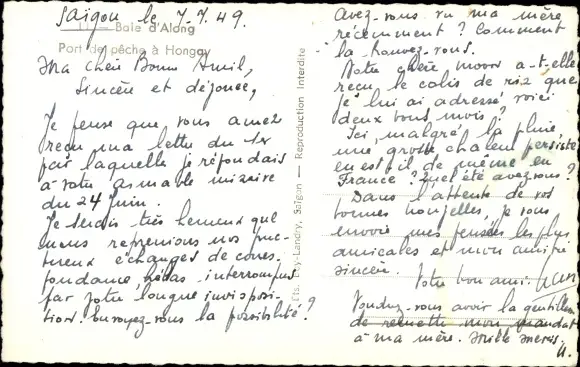 Saïgon le 7.7.49.
11 — Baie d'Along
Port de pêche à Hongay
Ma chère Bonne Amie,
Sincère et dévouée,
Je pense que vous avez
reçu ma lettre du 1er
par laquelle je répondais
à votre aimable missive
du 24 Juin.
Je serais très heureux que
nous reprenions nos fruc-
tueux échanges de corres-
pondance, hélas interrompus
par votre longue indisposi-
tion. En voyez-vous la possibilité ?
Ets. -Landry, Saïgon — Reproduction Interdite
Avez-vous vu ma mère
récemment ? Comment
la trouvez-vous.
Notre chère a-t-elle
reçu le colis de riz que
je lui ai adressé, voici
deux bous mois ?
Ici, malgré la pluie
une grosse chaleur persiste
en est-il de même en
France ? Quel été avez-vous ?
Dans l'attente de vos
bonnes nouvelles, je vous
envoie mes pensées les plus
amicales et mon amitié
sincère.
Votre bon ami.
Voudrez-vous avoir la gentillesse
de remettre mon mandat
à ma mère. Mille mercis.